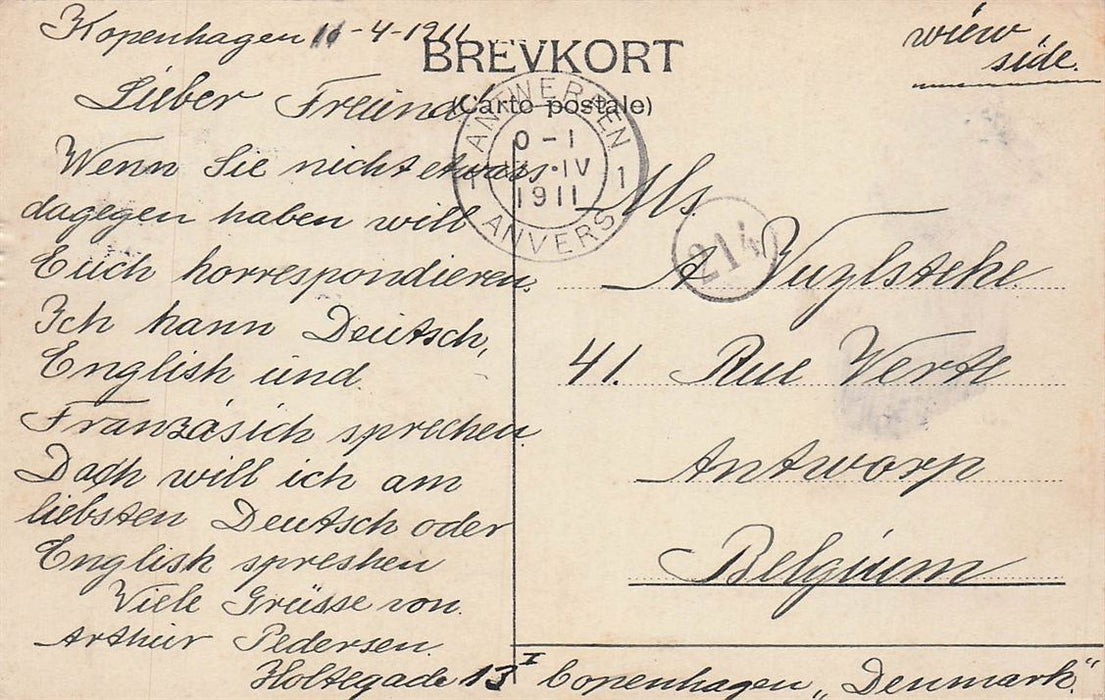 Kopenhagen 11-4-1911
Lieber Freund
Wenn Sie nicht etwas
dagegen haben will
Euch korrespondieren.
Ich kann Deutsch,
English und
Französich sprechen.
Doch will ich am
liebsten Deutsch oder
English spreshen
Viele Grüsse von.
Arthur Pedersen.
Holtegade 13 I Copenhagen „Denmark."
BREVKORT
(Carte postale)
wiew
side.
ANTWERPEN
0-1
IV
1911
1 1
ANVERS
214
Ms.
A Vuylsteke.
41. Rue Verte
Antworp
Belgium